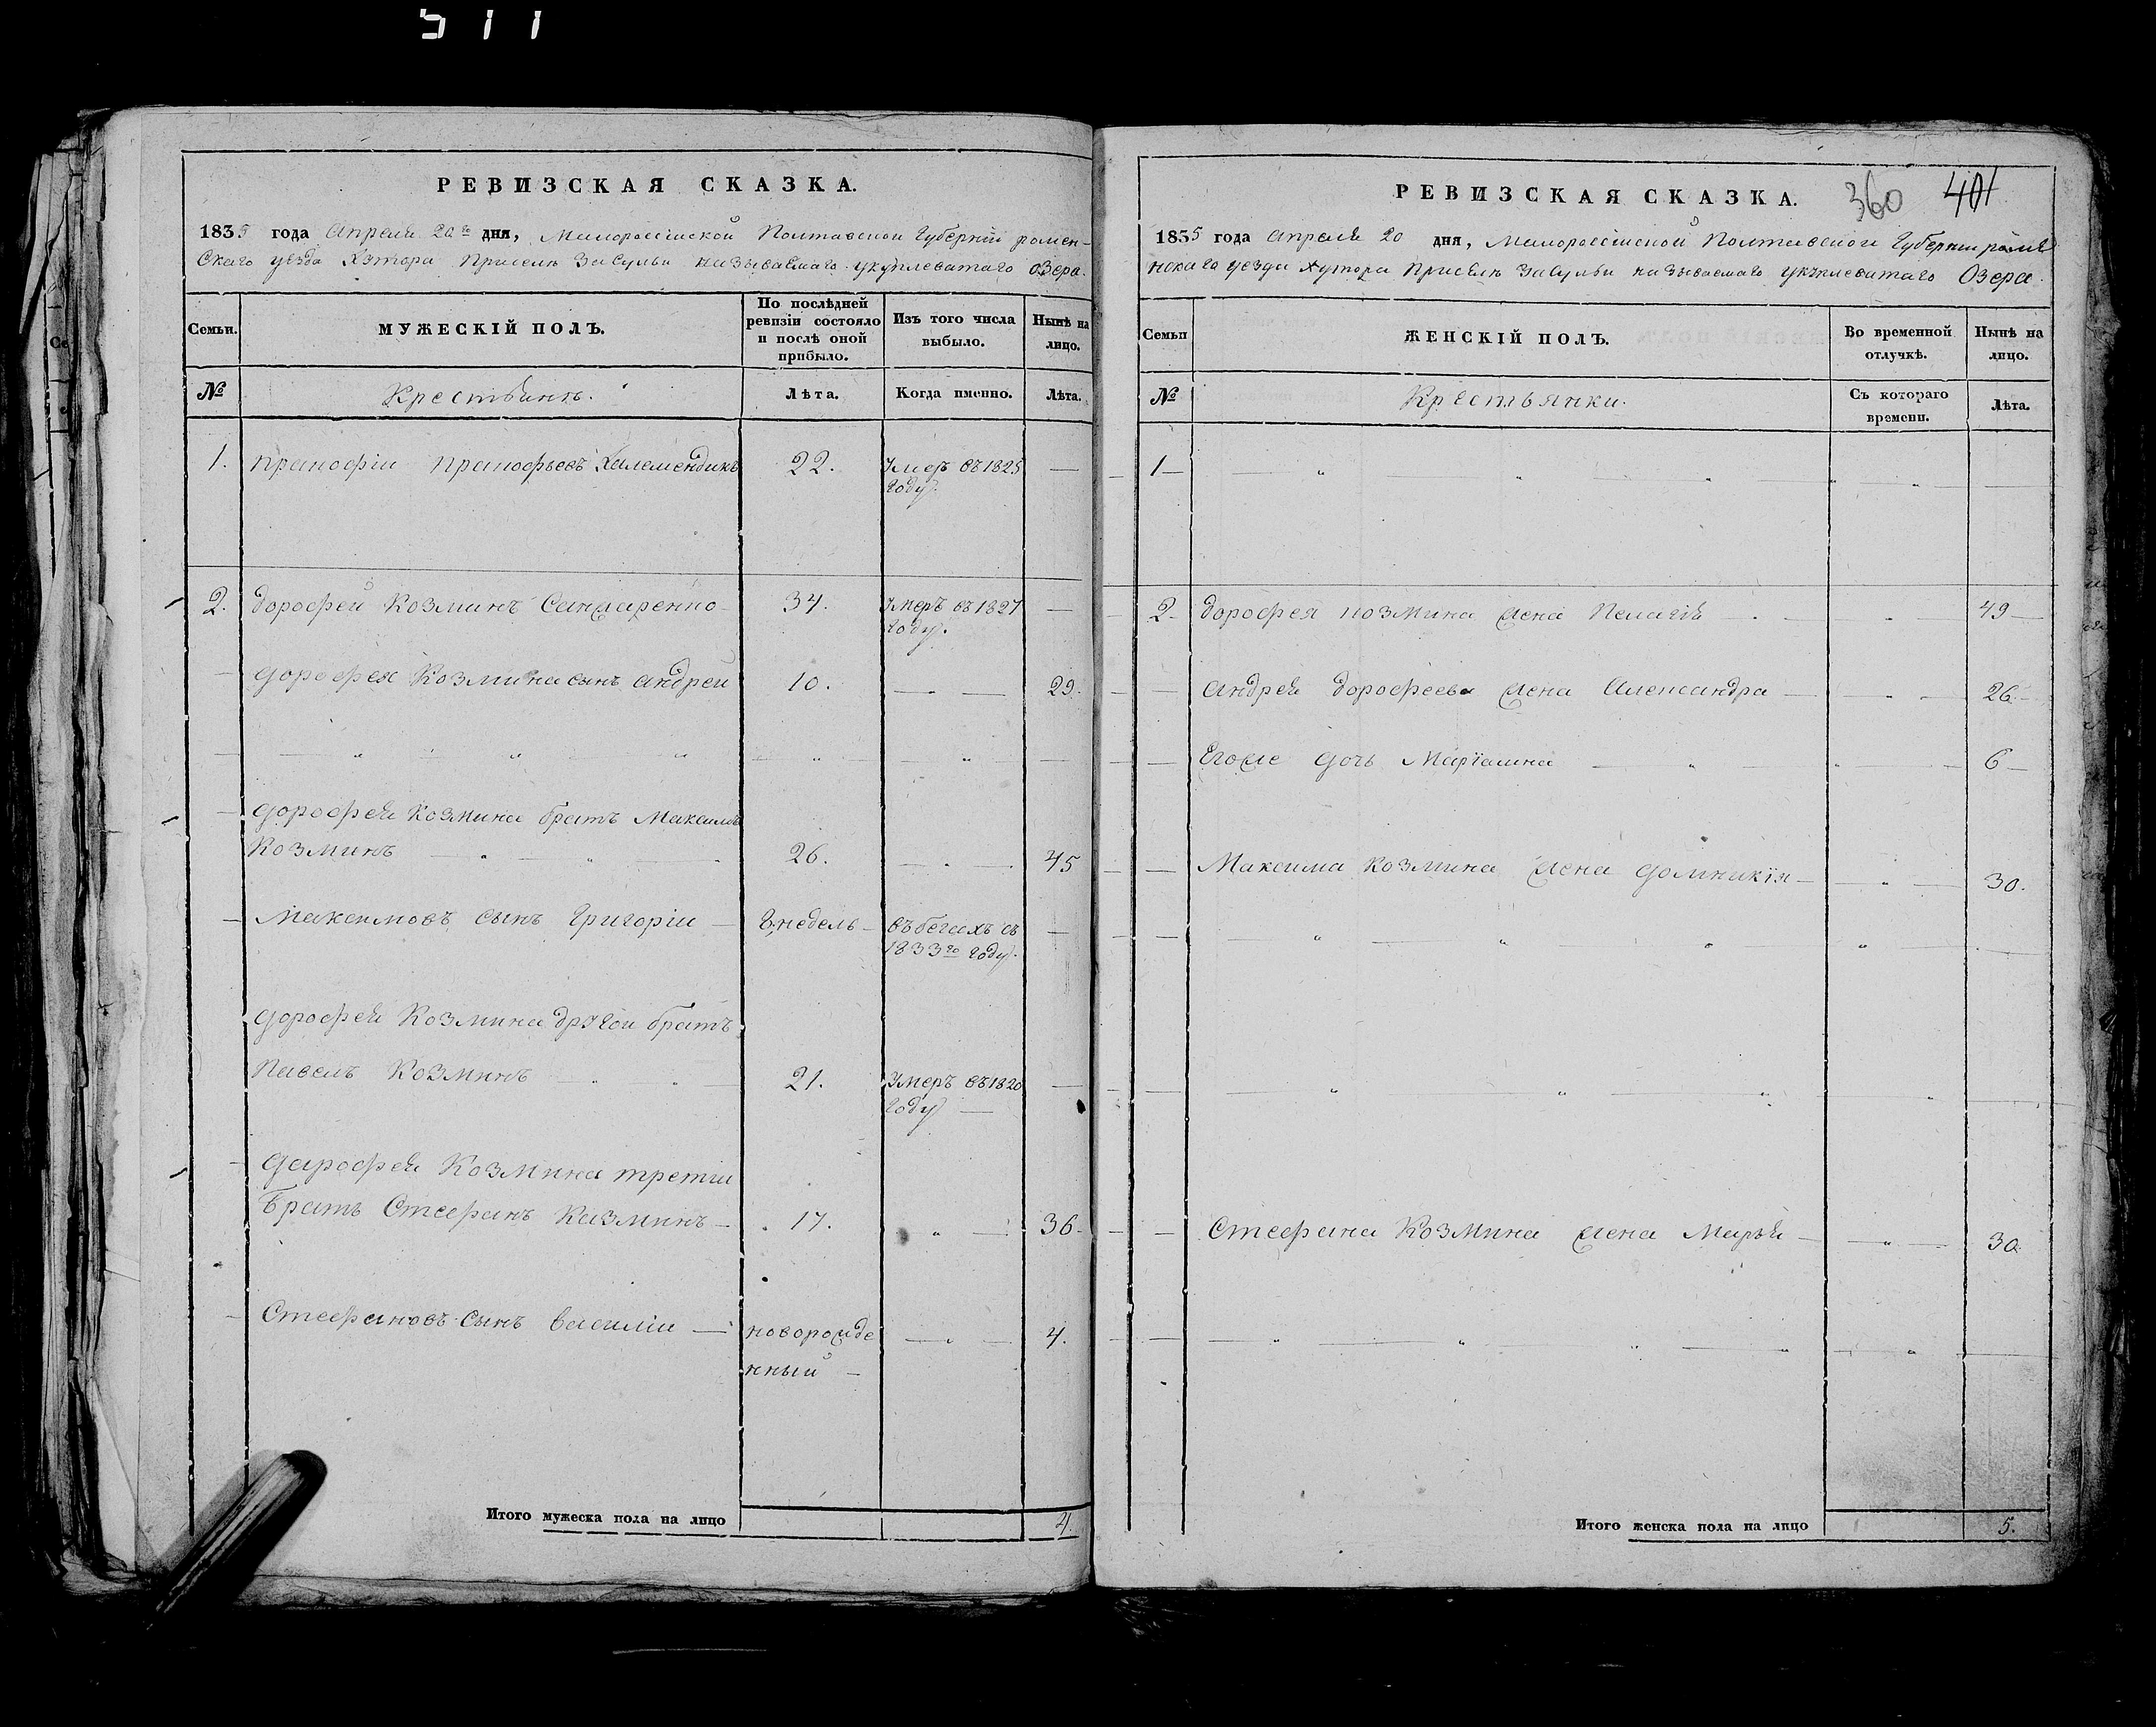 511
РЕВИЗСКАЯ СКАЗКА.
1835 года Апреля 20го дня, Малороссійской Полтавской Губерніи ромен-
скаго уезда Хутора Присель Засулья называемаго
Озера.
Семьи.
МУЖЕСКІЙ ПОЛЪ.
По послѣдней ревизіи состояло и послѣ оной прибыло.
Изъ того числа выбыло.
Нынѣ на лицо.
№
Крестьянъ.
Лѣта.
Когда именно.
Лѣта.
1. Пракофіи Пракофьевъ 22. Умеръ въ 1825 —
Году.
2. Дорофей Козминъ 34. Умеръ въ 1827 —
Году.
Дорофея Козмина сынъ андрей 10. — 29.
Дорофея Козмина братъ Максимъ
Козминъ — 26. — 45
Максимовъ сынъ Григоріи — 8; недель — въ бегахъ съ —
1833го Году.
Дорофея Козмина другои братъ
Павелъ Козминъ 21. Умеръ въ 1820 —
Году —
Дарофея Козмина третіи
братъ Стефанъ Казминъ — 17. — 36.
Стефановъ сынъ василіи — новорожде — 4.
нный —
Итого мужеска пола на лицо 4.
РЕВИЗСКАЯ СКАЗКА. 360 401
1835 года Апреля 20 дня, Малороссійской Полтавской Губерніи роме
нскаго уезда Хутора Присель Засулья называемаго
Озера.
Семьи
ЖЕНСКІЙ ПОЛЪ.
Во временной отлучкѣ.
Нынѣ на лицо.
№
Крестьянки.
Съ котораго времени.
Лѣта.
1 —
2 — Дорофея козмина жена Пелагія — 49 —
Андрея Дорофеева жена Александра — 26 —
Егоже дочь Маріамна — 6 —
Максима Козмина жена Домникія — 30.
Стефана Козмина жена Марья — 30.
Итого женска пола на лицо 5.